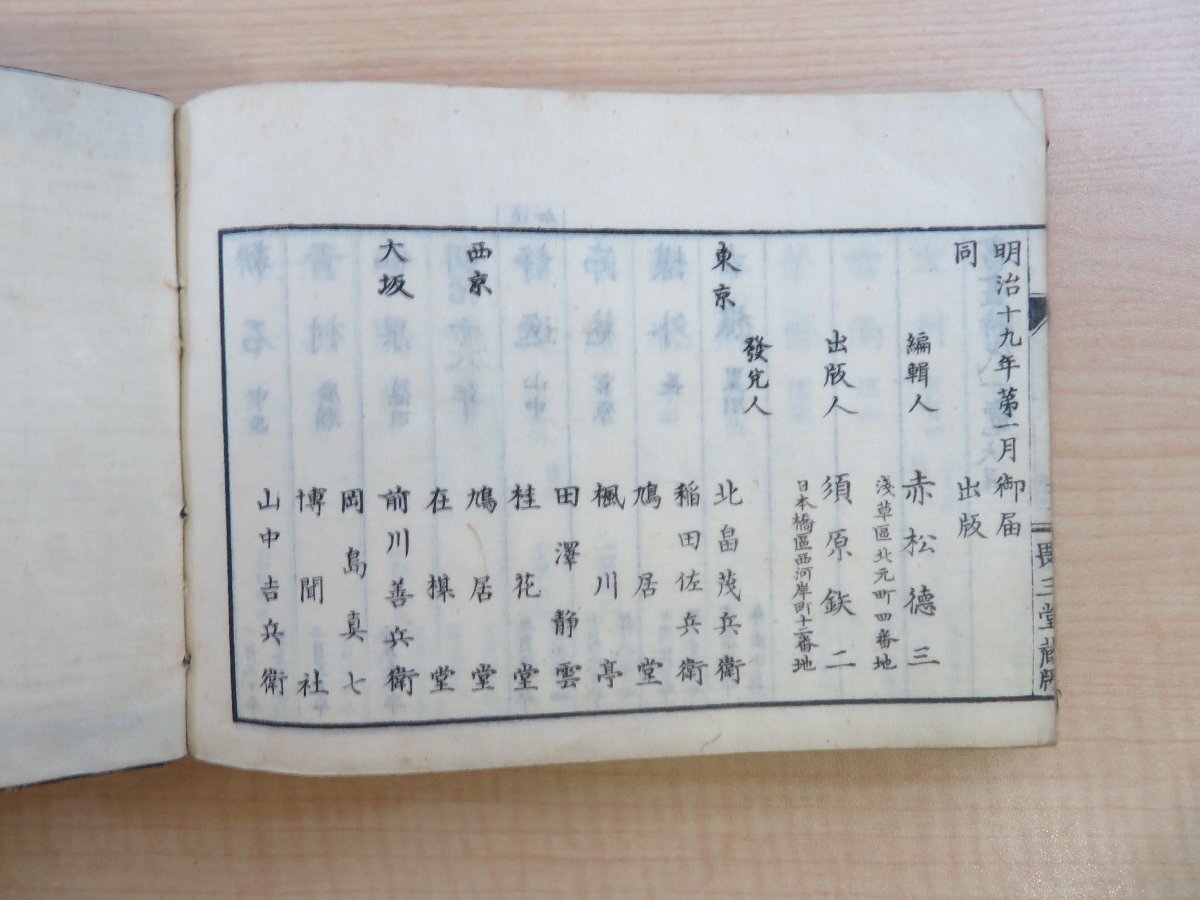 明治十九年第一月御届
同 出版
編輯人 赤松德三
淺草區北元町四番地
出版人 須原鉄二
日本橋區西河岸町十二番地
發兌人
東京 北畠茂兵衛
稲田佐兵衛
鳩居堂
楓川亭
田澤静雲
桂花堂
西京 鳩居堂
在棋堂
大坂 前川善兵衛
岡島真七
博聞社
山中吉兵衛
三堂蔵版